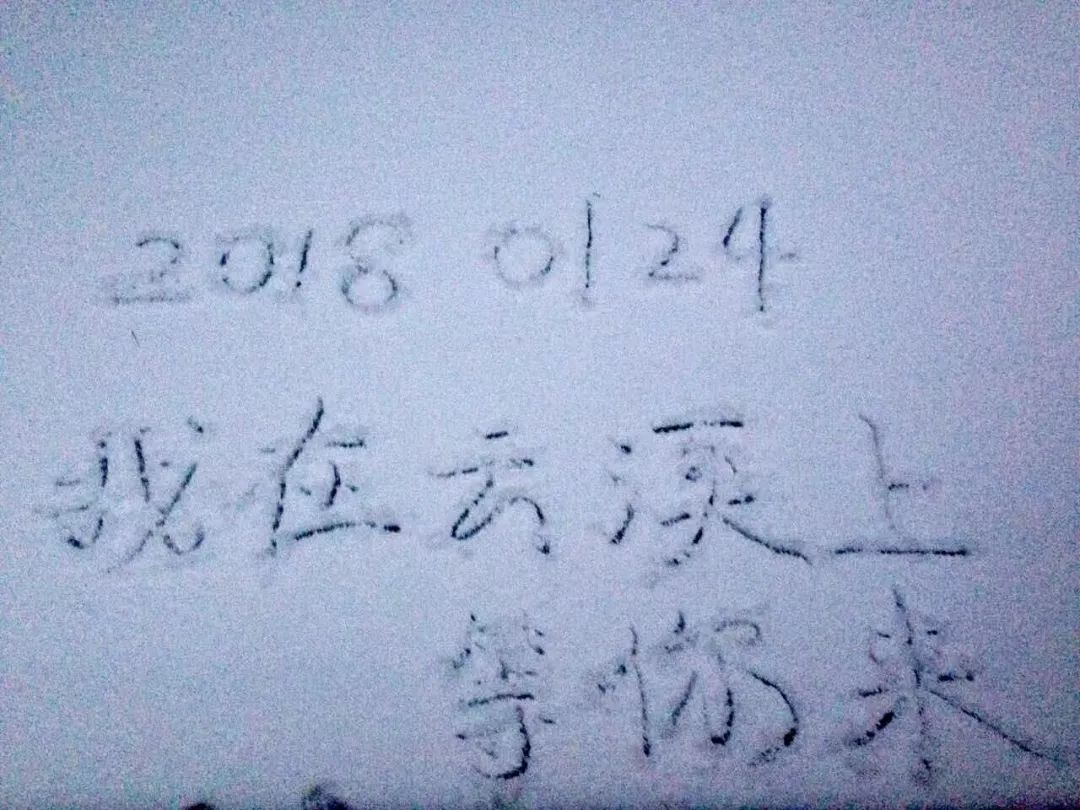 2018 0124
我在云溪上
等你来